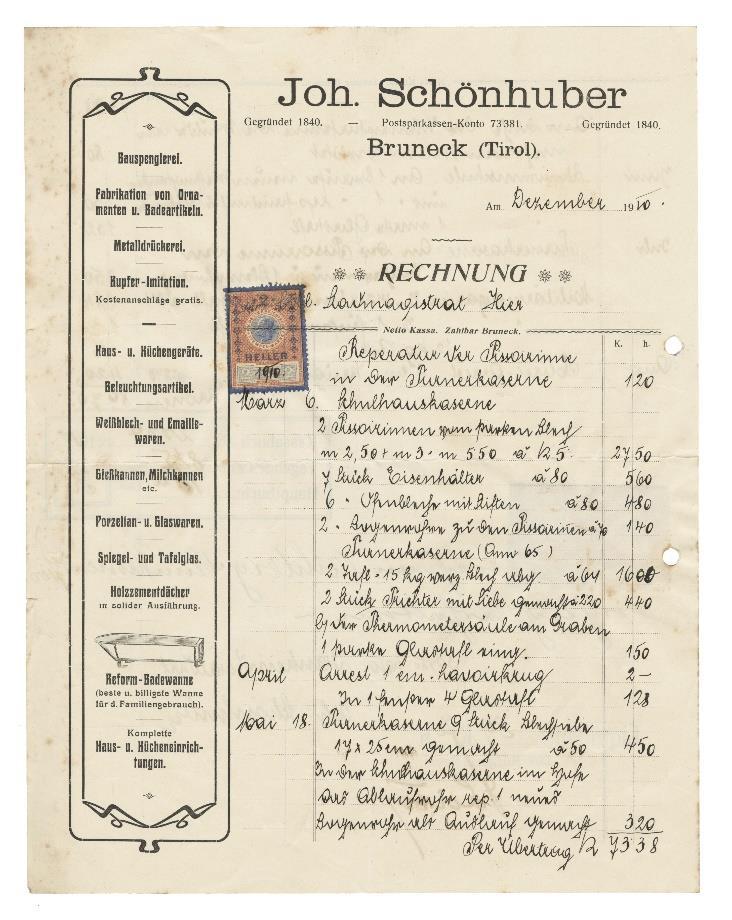 Joh. Schönhuber
Gegründet 1840. — Postsparkassen-Konto 73381. Gegründet 1840.
Bruneck (Tirol).
Am Dezember 1910.
RECHNUNG
Stadtmagistrat Hier
Netto Kassa. Zahlbar Bruneck.
K. h.
HELLER
1910
2 2
Bauspenglerei.
Fabrikation von Orna-
menten u. Badeartikeln.
Metalldrückerei.
Kupfer-Imitation.
Kostenanschläge gratis.
Haus- u. Küchengeräte.
Beleuchtungsartikel.
Weißblech- und Emaille-
waren.
Gießkannen, Milchkannen
etc.
Porzellan- u. Glaswaren.
Spiegel- und Tafelglas.
Holzzementdächer
in solider Ausführung.
Reform-Badewanne
(beste u. billigste Wanne
für d. Familiengebrauch).
Komplette
Haus- u. Kücheneinrich-
tungen.
Reperatur der Pissoirinne
in der Turnerkaserne 120
März 6. Schulhauskaserne
2 Pissoirinnen vom starken Blech
m 2,50 + m 3 = m 5 50 à 5. 27 50
7 Stück Eisenhälter à 80 5 60
6 " Ofenbleche mit Stiften à 80 4 80
2 " Bogenrohre zu den Pissoirinen à 70 1 40
Turnerkaserne (Anno 65)
2 Tafl = 15 kg verz. Blech à 64
2 Stück Trichter mit Siebe gemacht à 220 4 40
der Thermometersäule am Graben
1 starke Glastafl eing. 1 50
April Arrest 1 em. Lavoirkrug 2 –
In 1 Fenster 4 Glastafl 1 28
Mai 18. Turnerkaserne 9 Stück Blechsiebe
17 x 25 cm gemacht à 50 4 50
In der Schulhauskaserne im Hofe
das Ablaufrohr rep. 1 neues
Bogenrohr als Auslauf gemacht 3 20
Per Übertrag 73 38